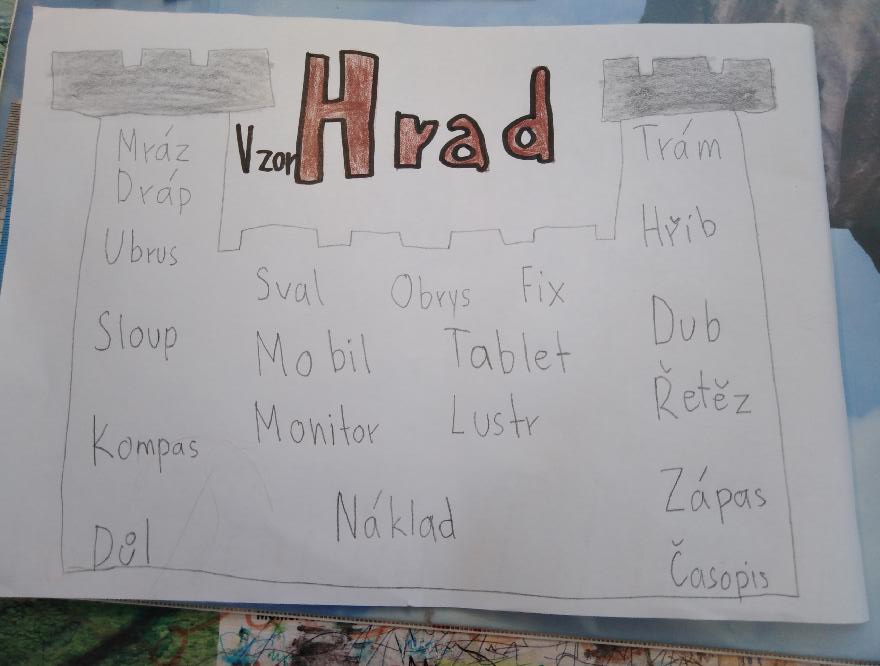 Vzor Hrad
Mráz
Dráp
Ubrus
Sloup
Kompas
Důl
Sval Obrys Fix
Mobil Tablet
Monitor Lustr
Náklad
Trám
Hřib
Dub
Řetěz
Zápas
Časopis